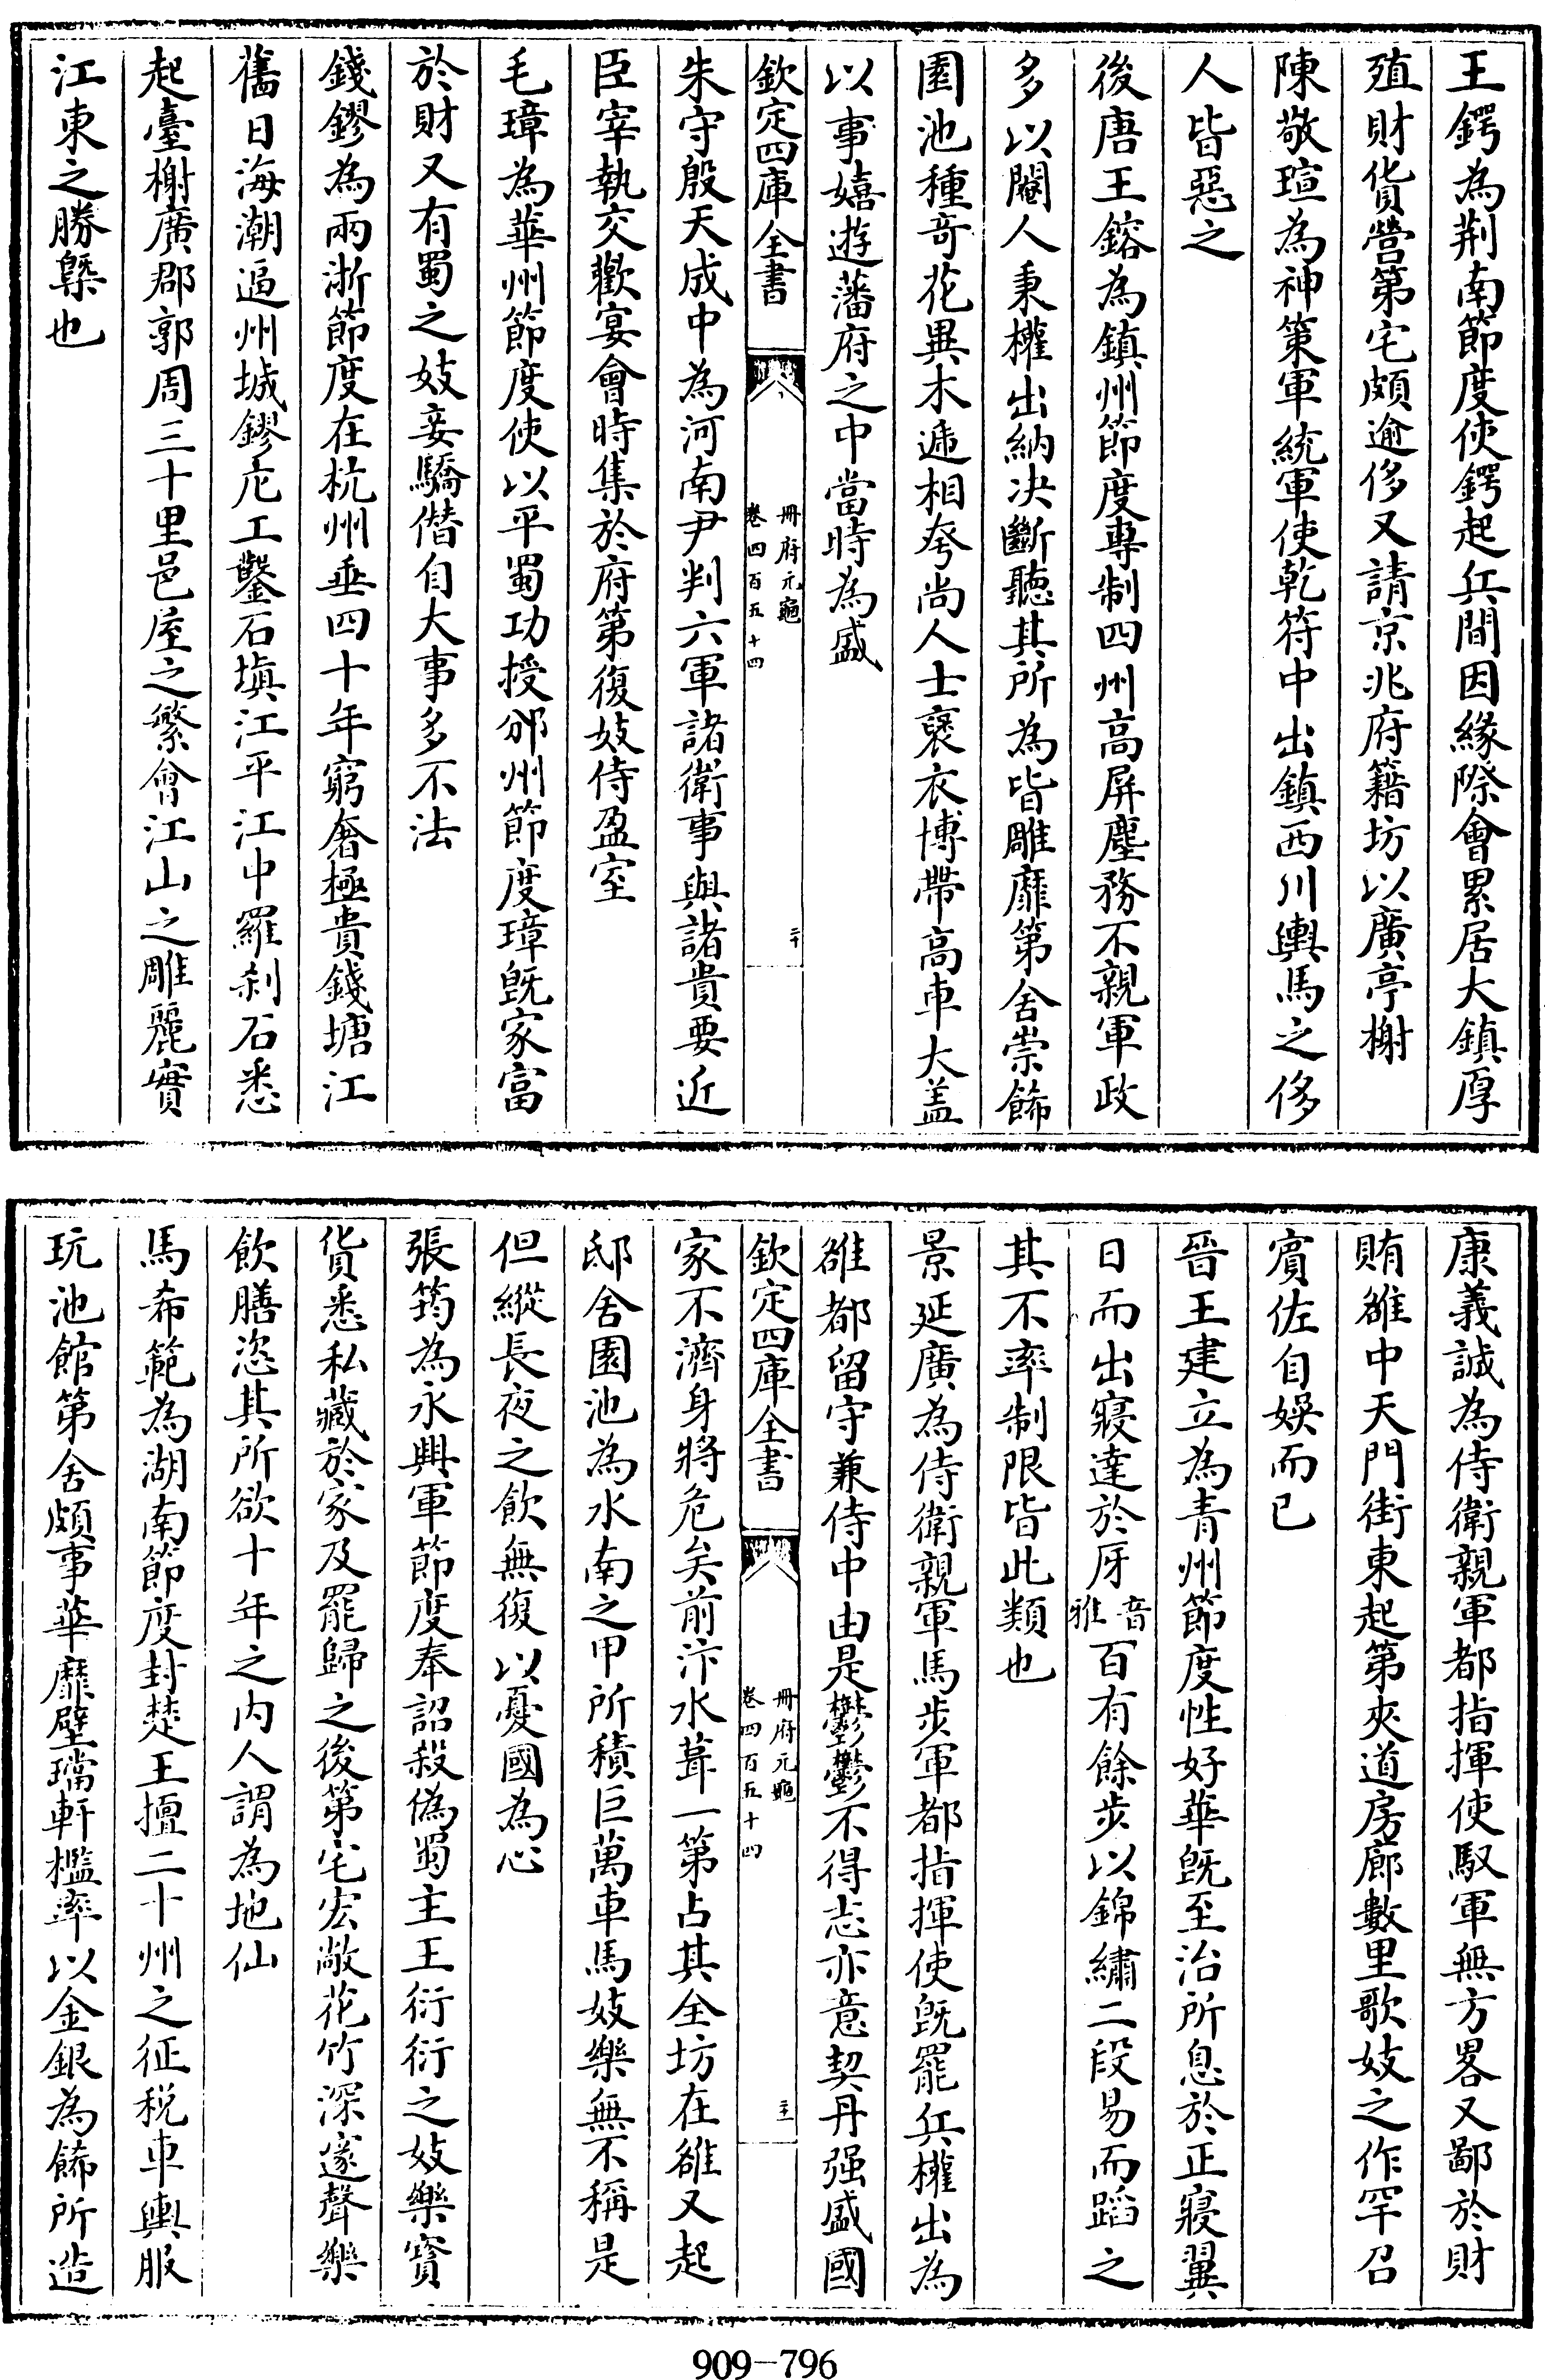 王鍔為荆南節度使鍔起兵間因緣際會累居大鎮厚
殖財貨營第宅頗逾侈又請京兆府籍坊以廣亭榭
陳敬瑄為神策軍統軍使乾符中出鎮西川輿馬之侈
人皆惡之
後唐王鎔為鎮州節度專制四州高屏塵務不親軍政
多以閹人秉權出納决斷聽其所為皆雕靡第舍崇飾
園池種奇花異木遞相夸尚人士裒衣博帶高車大盖
以事嬉遊藩府之中當時為盛
欽定四庫全書
冊府元龜
卷四百五十四
二十
朱守殷天成中為河南尹判六軍諸衛事與諸貴要近
臣宰執交歡宴會時集於府第復妓侍盈室
毛璋為華州節度使以平蜀功授邠州節度璋旣家富
於財又有蜀之妓妾驕僭自大事多不法
錢鏐為兩浙節度在杭州垂四十年窮奢極貴錢塘江
舊日海潮逼州城鏐庀工鑿石塡江平江中羅刹石悉
起臺榭廣郡郭周三十里邑屋之繁會江山之雕麗實
江東之勝槩也
康義誠為侍衛親軍都指揮使馭軍無方畧又鄙於財
賄雒中天門街東起第夾道房廊數里歌妓之作罕召
賓佐自娛而已
晉王建立為青州節度性好華旣至治所息於正寢翼
日而出寢達於厊音雅百有餘步以錦繡二段易而蹈之
其不率制限皆此類也
景延廣為侍衛親軍馬步軍都指揮使旣罷兵權出為
雒都留守兼侍中由是鬱鬱不得志亦意契丹强盛國
欽定四庫全書
冊府元龜
卷四百五十四
二十一
家不濟身將危矣前汴水葺一第占其全坊在雒又起
邸舍園池為水南之甲所積巨萬車馬妓樂無不稱是
但縱長夜之飲無復以憂國為心
張筠為永興軍節度奉詔殺偽蜀主王衍衍之妓樂寶
貨悉私藏於家及罷歸之後第宅宏敞花竹深邃聲樂
飲膳恣其所欲十年之内人謂為地仙
馬希範為湖南節度封楚王擅二十州之征税車輿服
玩池館第舍頗事華靡壁璫軒檻率以金銀為飾所造
909-796